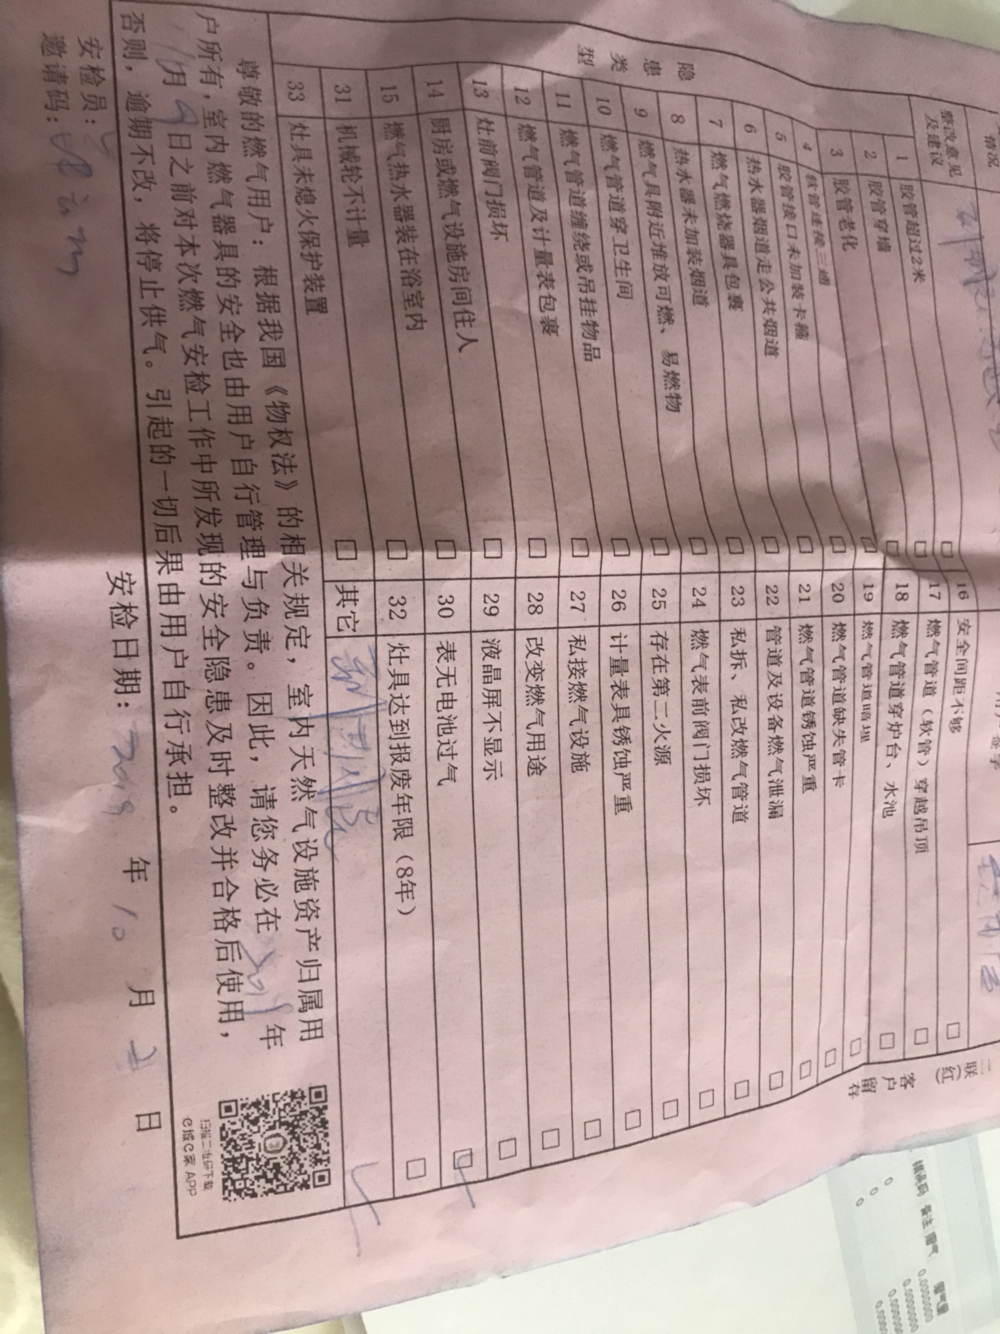 情况
整改意见
及建议
签字
隐患类型
1 胶管超过2米 □ 16 安全间距不够 □
2 胶管穿墙 □ 17 燃气管道（软管）穿越吊顶 □
3 胶管老化 □ 18 燃气管道穿炉台、水池 □
4 软管连接三通 □ 19 燃气管道暗埋 □
5 胶管接口未加装卡箍 □ 20 燃气管道缺失管卡 □
6 热水器烟道走公共烟道 □ 21 燃气管道锈蚀严重 □
7 燃气燃烧器具包裹 □ 22 管道及设备燃气泄漏 □
8 热水器未加装烟道 □ 23 私拆、私改燃气管道 □
9 燃气具附近堆放可燃、易燃物 □ 24 燃气表前阀门损坏 □
10 燃气管道穿卫生间 □ 25 存在第二火源 □
11 燃气管道缠绕或吊挂物品 □ 26 计量表具锈蚀严重 □
12 燃气管道及计量表包裹 □ 27 私接燃气设施 □
13 灶前阀门损坏 □ 28 改变燃气用途 □
14 厨房或燃气设施房间住人 □ 29 液晶屏不显示 □
15 燃气热水器装在浴室内 □ 30 表无电池过气 □
31 机械轮不计量 □ 32 灶具达到报废年限（8年） □
33 灶具未熄火保护装置 □ 其它
二联（红）客户留存
尊敬的燃气用户：根据我国《物权法》的相关规定，室内天然气设施资产归属用
户所有，室内燃气器具的安全也由用户自行管理与负责。因此，请您务必在2019年
11月9日之前对本次燃气安检工作中所发现的安全隐患及时整改并合格后使用，
否则，逾期不改，将停止供气。引起的一切后果由用户自行承担。
安检员：
邀请码：
安检日期：2019年10月 日
扫描二维码下载
e城e家 APP
错误码 备注 量气
0 0.0000000
0 0.0000000
0 0.000